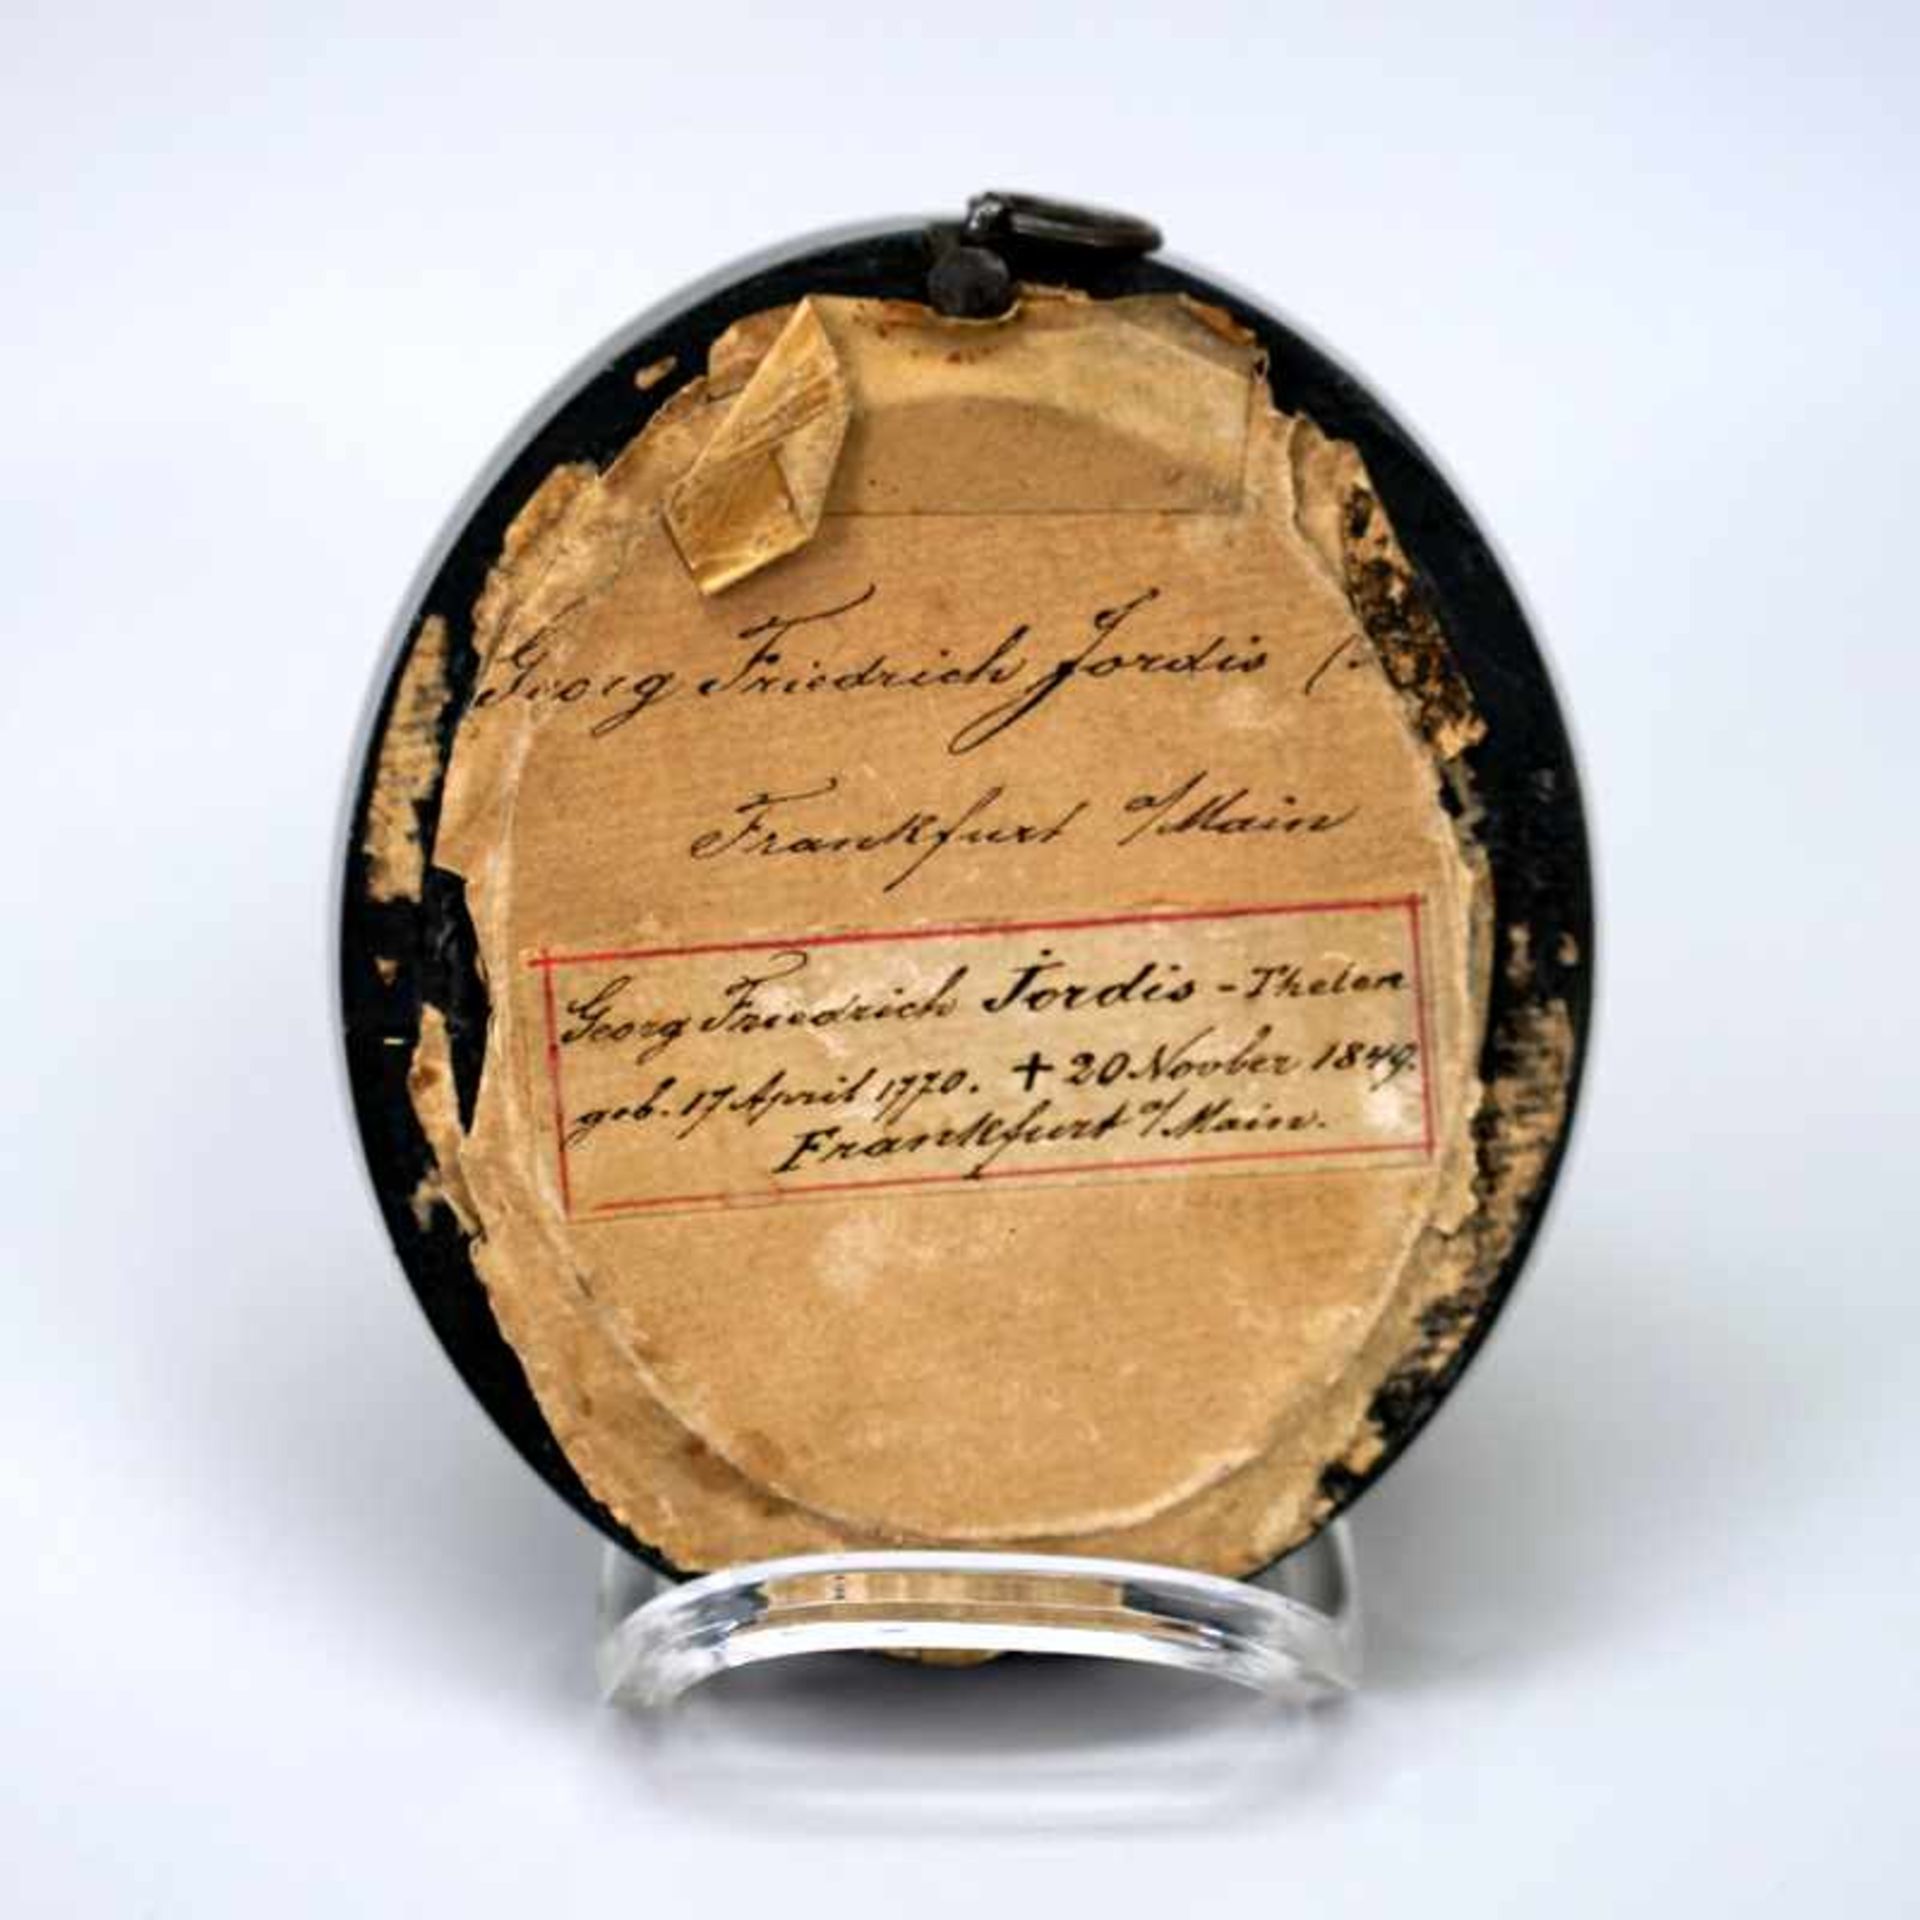 Georg Friedrich Jordis (
Frankfurt a/Main
Georg Friedrich Jordis - Thelen
geb. 17 April 1770. + 20 Novber 1849.
Frankfurt a/Main.